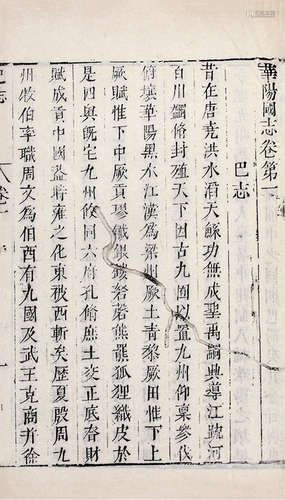 華陽國志卷第一
巴志
昔在唐堯洪水滔天鯀功無成聖禹嗣興導江疏河
百川蠲脩封殖天下因古九囿以置九州仰稟參伐
俯壤華陽黑水江漢爲梁州厥土青黎厥田惟下上
厥賦惟下中厥貢璆鐵銀鏤砮磬熊羆狐狸織皮於
是四奧旣宅九州攸同六府孔脩庶土交正底昚財
賦成貢中國蓋時雍之化東被西漸矣歷夏殷周九
州牧伯率職周文爲伯西有九國及武王克商并徐